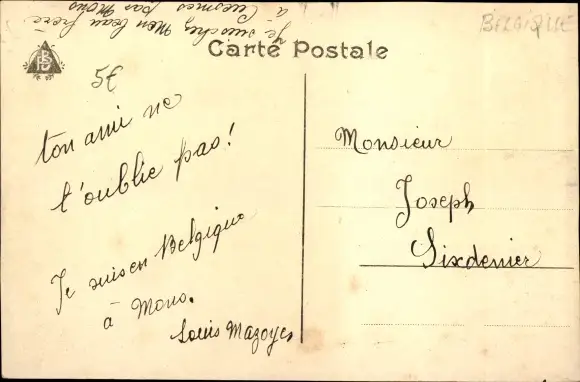 Je suis chez mon beau frère
à Cuesmes pas Mons
BELGIQUE
Carte Postale
5€
ton ami ne
t'oublie pas!
Je suis en Belgique
à Mons.
Louis Mazoyer
Monsieur
Joseph
Sixdenier